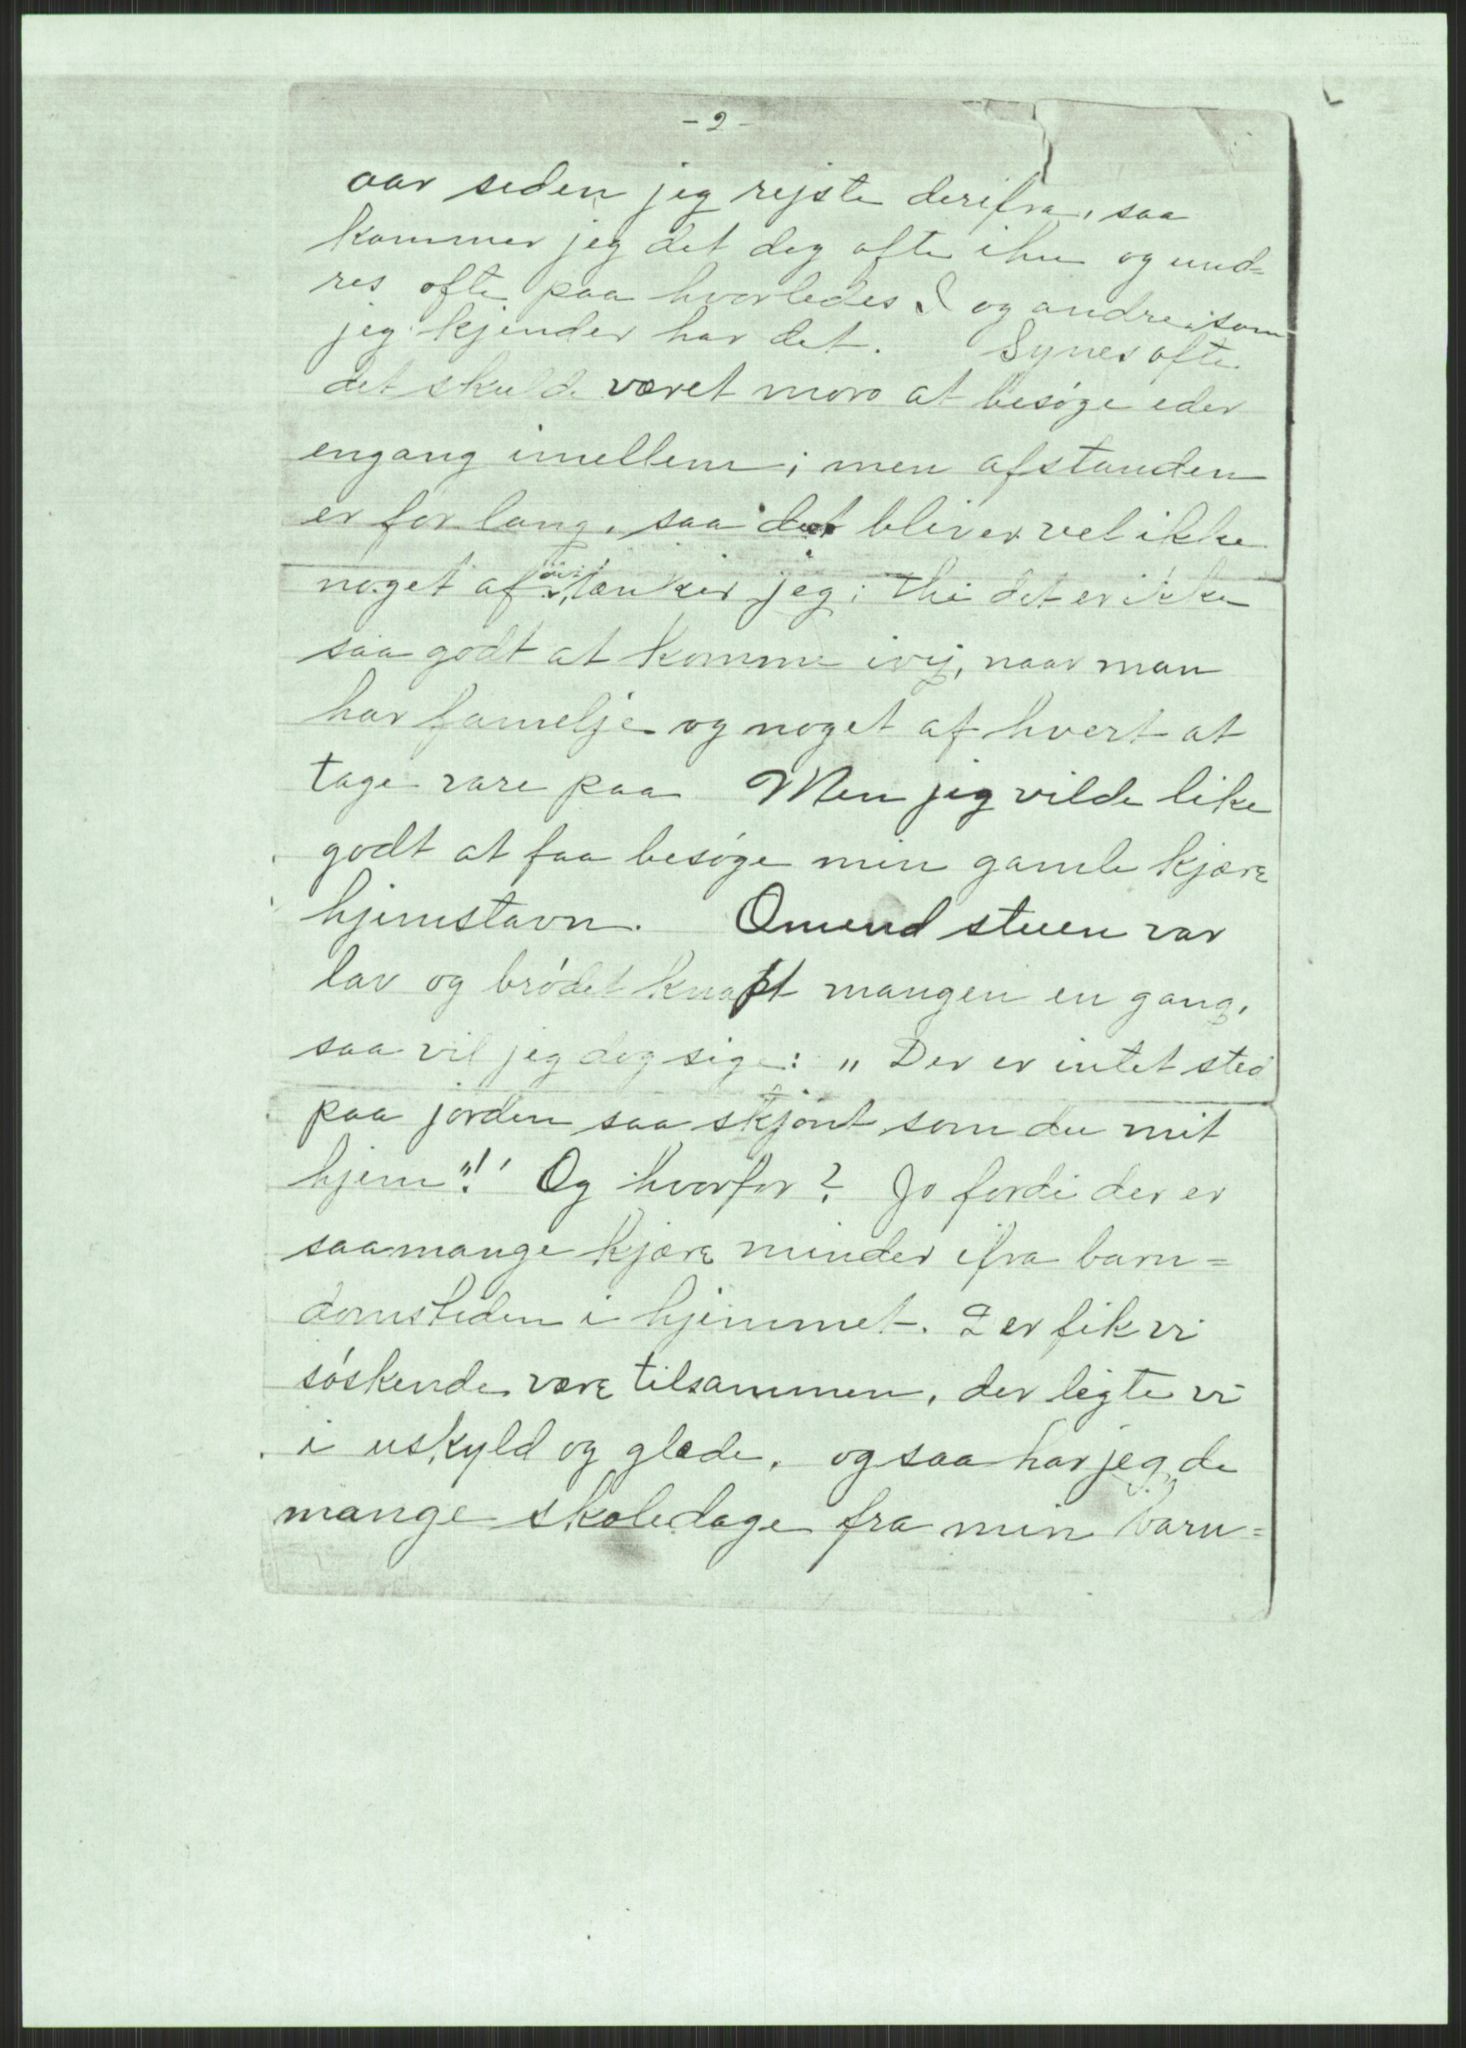 - 2 -
aar siden jeg rejste derifra, saa
kommer jeg det dog ofte ihu og und=
res ofte paa hvorledes I og andre som
jeg kjender har det. Synes ofte
det skulde været moro at besøge eder
engang imellem; men afstanden
er for lang, saa det bliver vel ikke
noget af, tænker jeg; thi det er ikke
saa godt at komme ivej, naar man
har familje og noget af hvert at
tage vare paa Men jeg vilde like
godt at faa besøge min gamle kjære
hjemstavn. Omend stuen var
lav og brødet knapt mangen en gang,
saa vil jeg dog sige: „Der er intet sted
paa jorden saa skjønt som du mit
hjem"! Og hvorfor? Jo fordi der er
saamange kjære minder ifra barn=
domstiden i hjemmet. Der fik vi
søskende være tilsammen, der legte vi
i uskyld og glæde, og saa har jeg de
mange skoledage fra min barn=